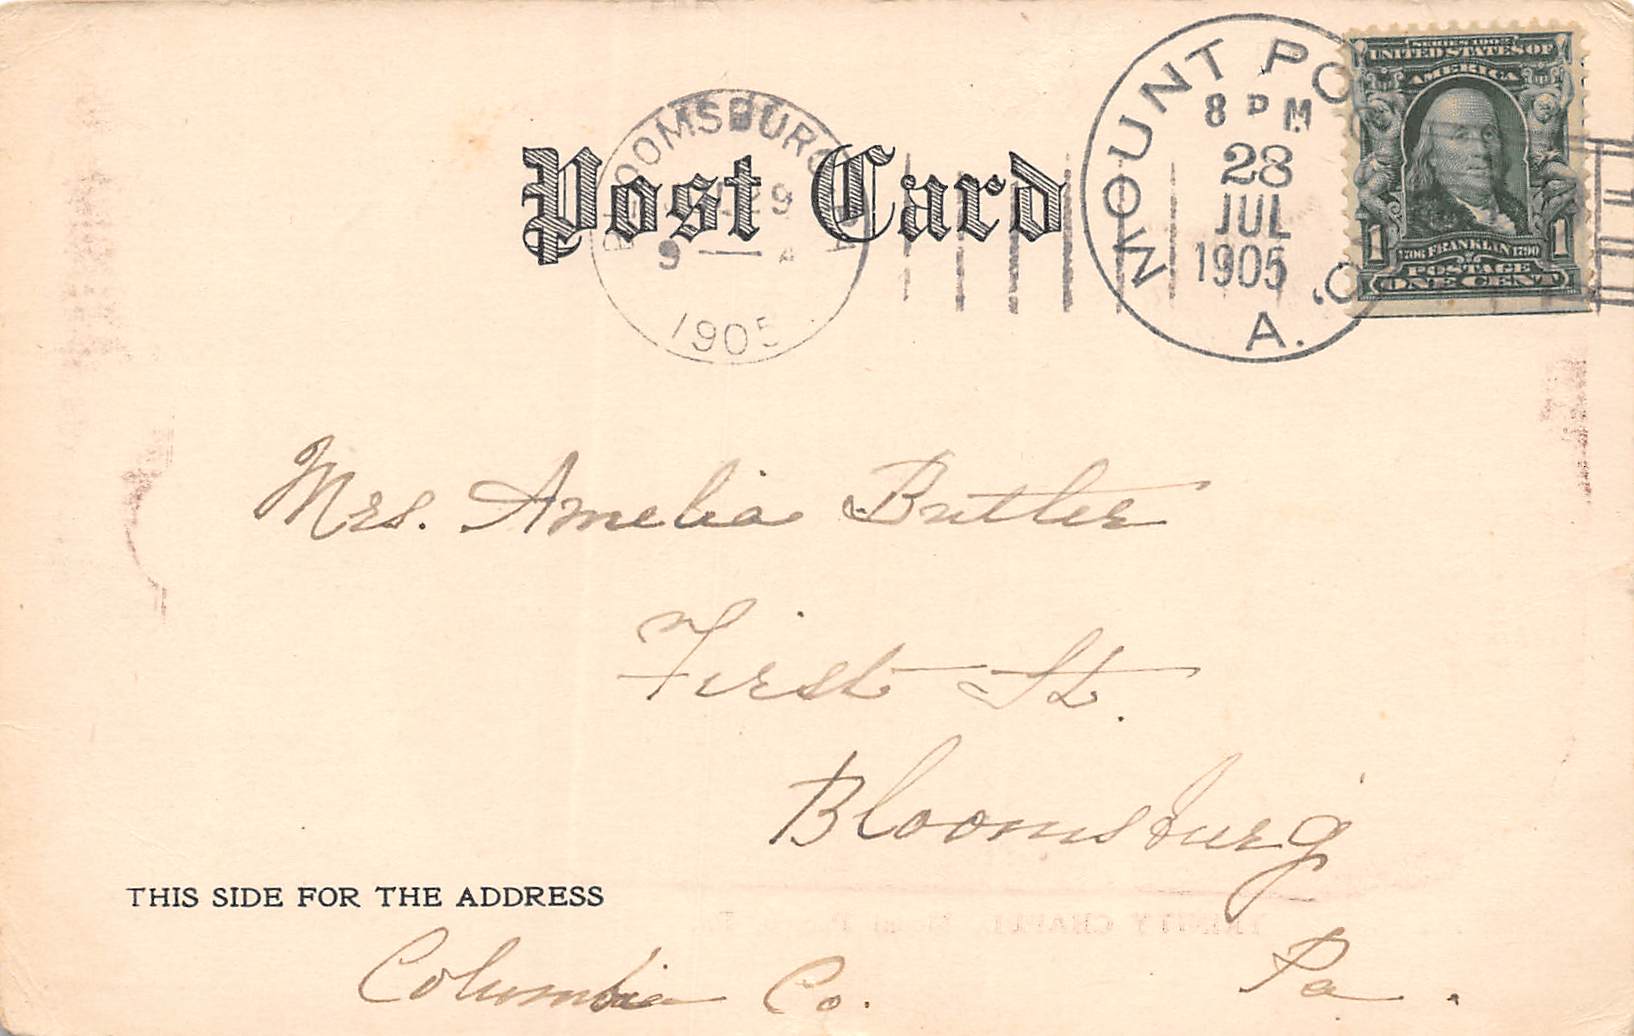 Post Card
BLOOMSBURG
29
9 — A
1905
MOUNT PO
8 PM
28
JUL
1905
A.
SERIES 1902
UNITED STATES OF
AMERICA
1706 FRANKLIN 1790
1 1
POSTAGE
ONE CENT
Mrs. Amelia Butler
First St.
Bloomsburg
THIS SIDE FOR THE ADDRESS
Columbia Co. Pa.
TRINITY CHAPEL, Mount